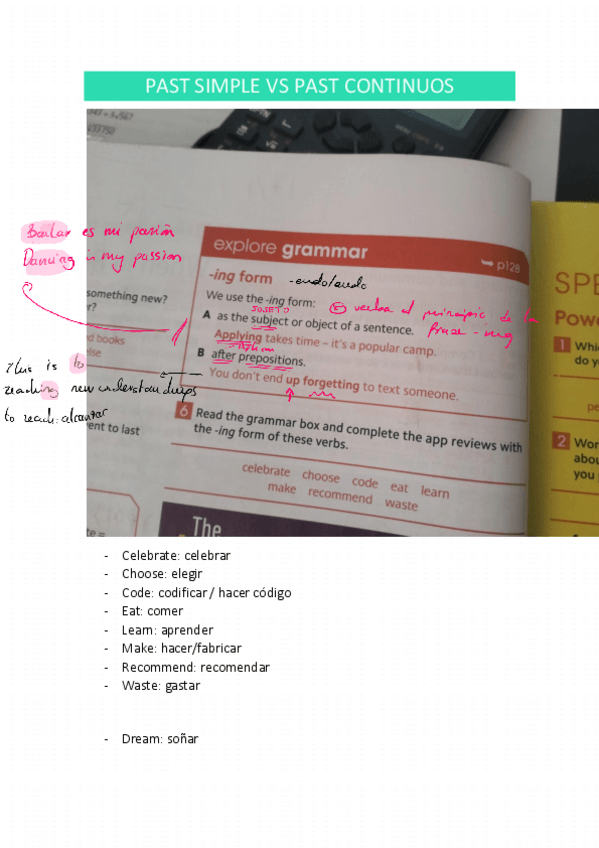 PAST SIMPLE VS PAST CONTINUOS
Bailar es mi pasión
Dancing is my passion
explore grammar
p128
-ing form
-endo/ando
We use the -ing form:
SUJETO
verbo al principio de la
frase -ing
A as the subject or object of a sentence.
Applying takes time – it's a popular camp.
B after prepositions.
You don't end up forgetting to text someone.
This is to
reaching new understandings
to reach: alcanzar
something new?
r?
d books
else
ent to last
6 Read the grammar box and complete the app reviews with
the -ing form of these verbs.
celebrate choose code eat learn
make recommend waste
The
SPE
Powe
1 Whic
do y
pe
2 Wor
abou
you
- Celebrate: celebrar
- Choose: elegir
- Code: codificar / hacer código
- Eat: comer
- Learn: aprender
- Make: hacer/fabricar
- Recommend: recomendar
- Waste: gastar
- Dream: soñar